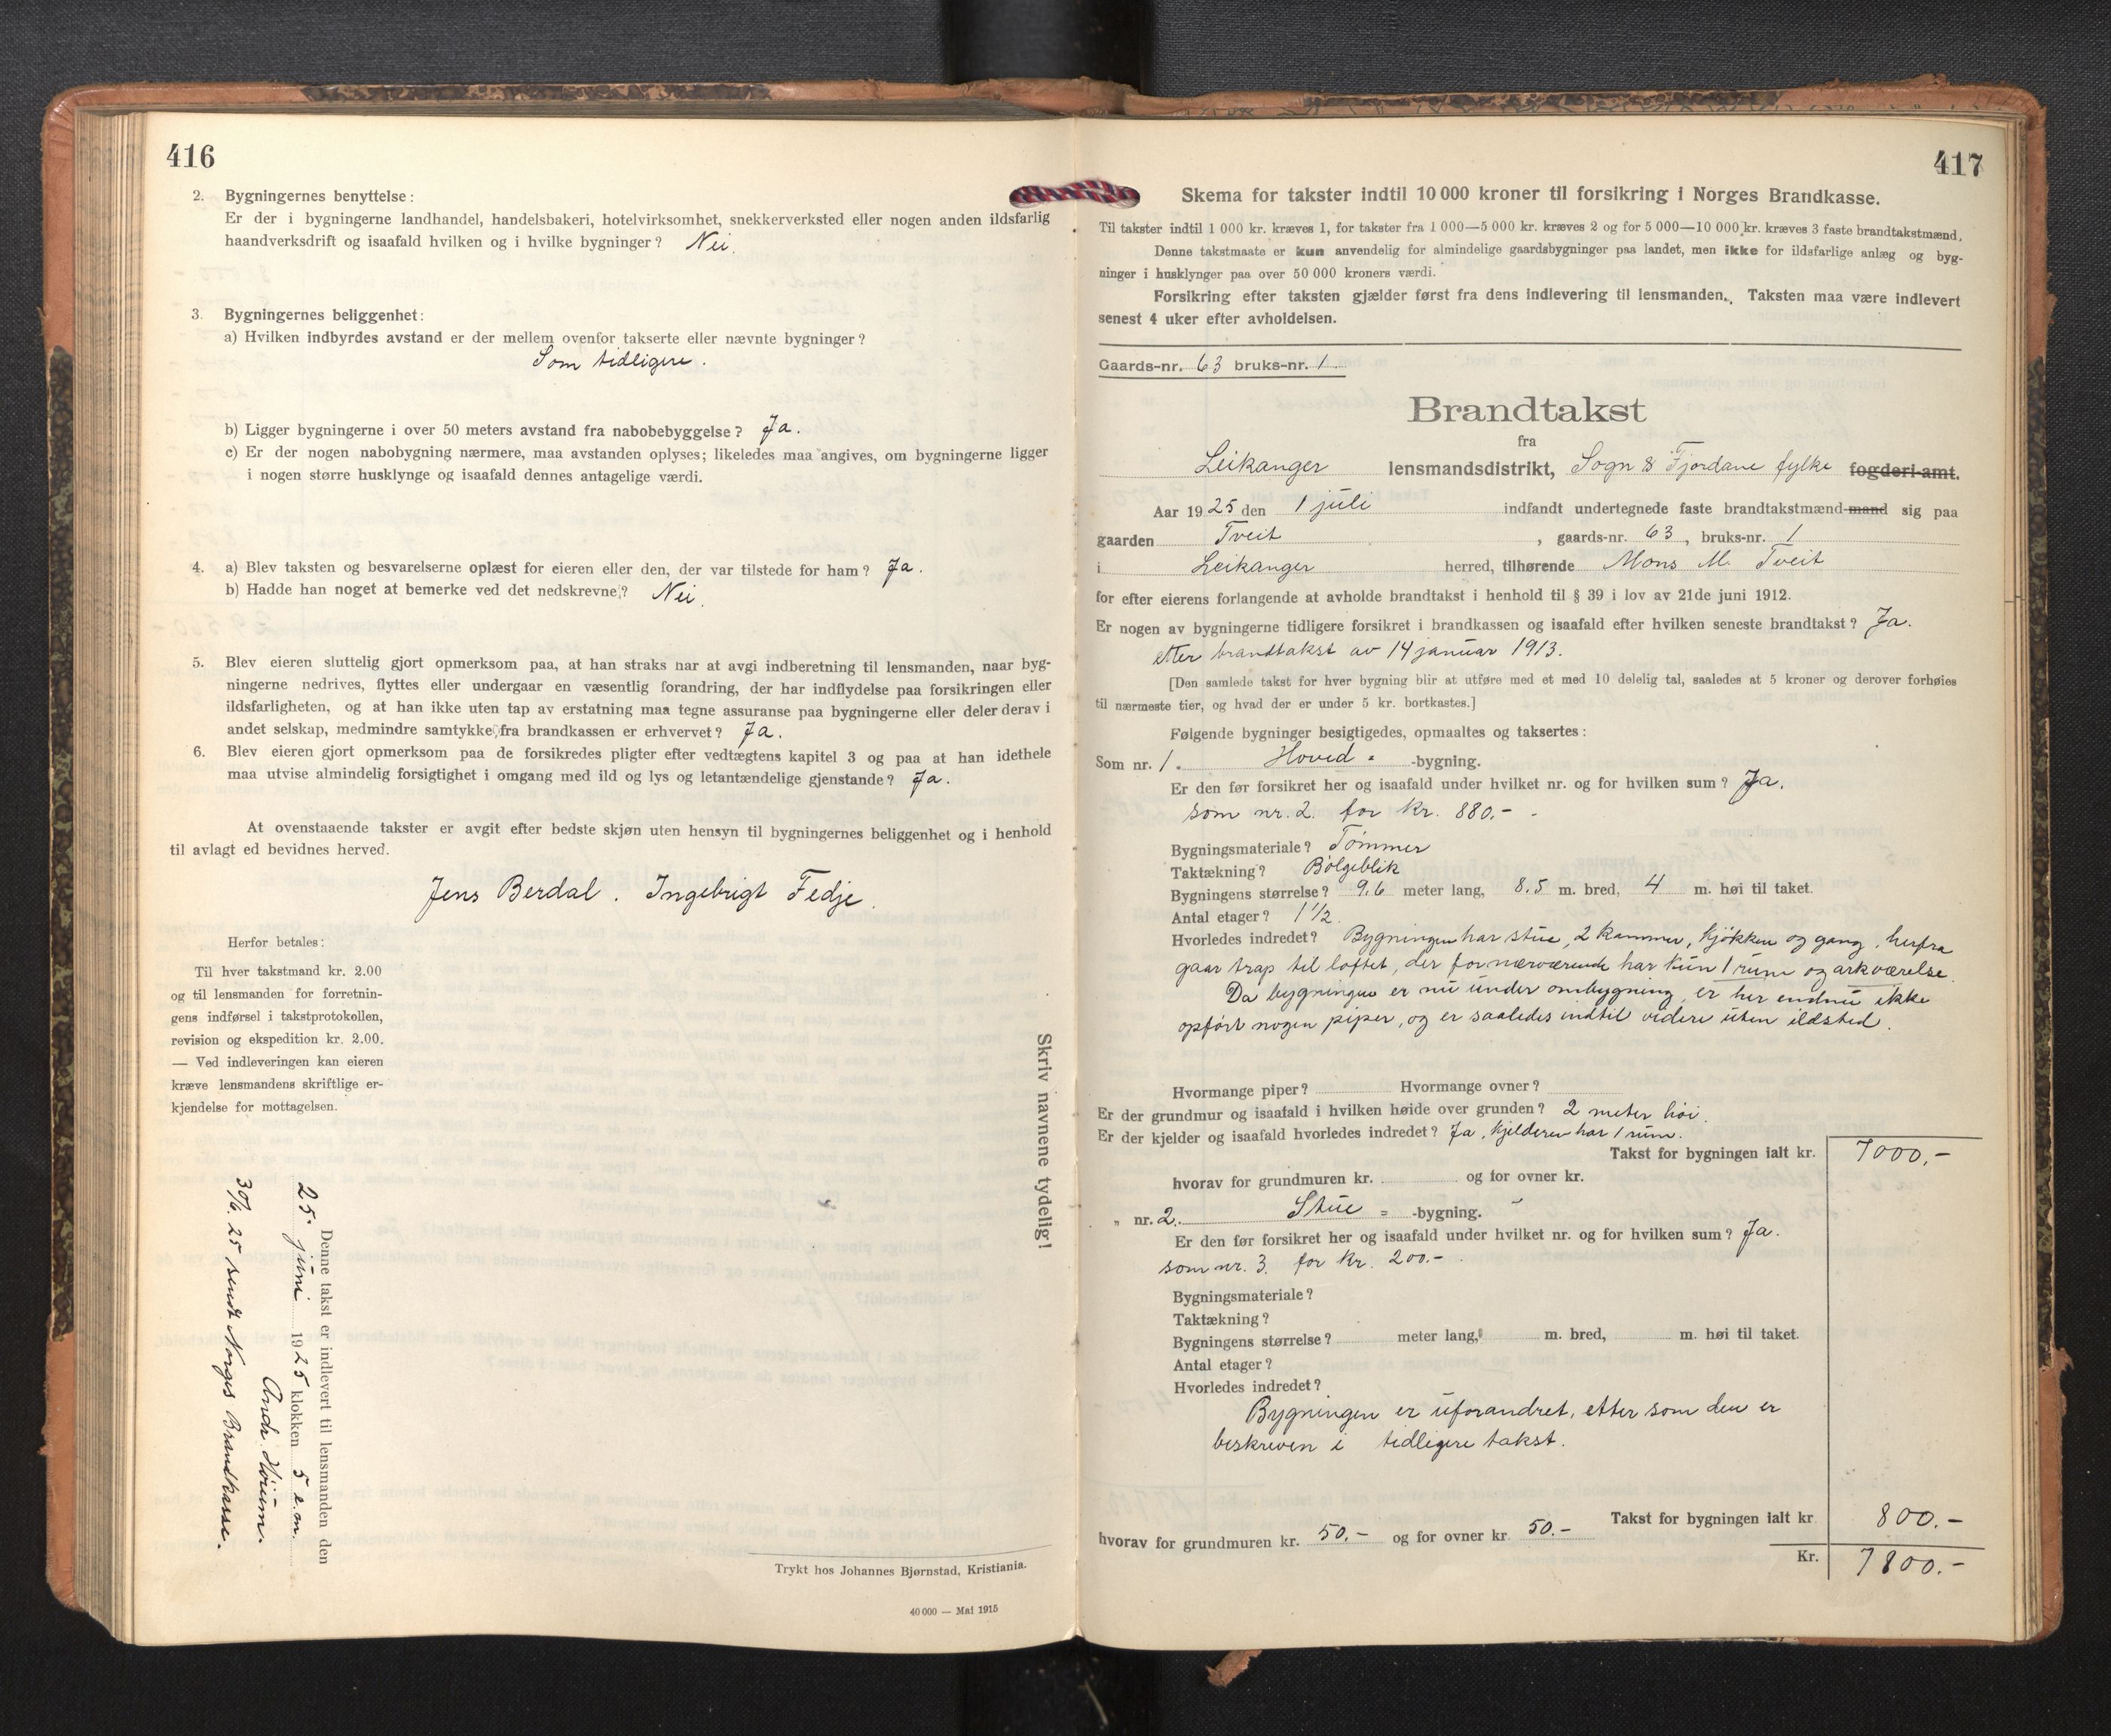 416
2. Bygningernes benyttelse:
Er der i bygningerne landhandel, handelsbakeri, hotelvirksomhet, snekkerverksted eller nogen anden ildsfarlig
haandverksdrift og isaafald hvilken og i hvilke bygninger? Nei.
3. Bygningernes beliggenhet:
a) Hvilken indbyrdes avstand er der mellem ovenfor takserte eller nævnte bygninger?
Som tidligere.
b) Ligger bygningerne i over 50 meters avstand fra nabobebyggelse? Ja.
c) Er der nogen nabobygning nærmere, maa avstanden oplyses; likeledes maa angives, om bygningerne ligger
i nogen større husklynge og isaafald dennes antagelige værdi.
4. a) Blev taksten og besvarelserne oplæst for eieren eller den, der var tilstede for ham? Ja.
b) Hadde han noget at bemerke ved det nedskrevne? Nei.
5. Blev eieren sluttelig gjort opmerksom paa, at han straks har at avgi indberetning til lensmanden, naar byg-
ningerne nedrives, flyttes eller undergaar en væsentlig forandring, der har indflydelse paa forsikringen eller
ildsfarligheten, og at han ikke uten tap av erstatning maa tegne assuranse paa bygningerne eller deler derav i
andet selskap, medmindre samtykke fra brandkassen er erhvervet? Ja.
6. Blev eieren gjort opmerksom paa de forsikredes pligter efter vedtægtens kapitel 3 og paa at han idethele
maa utvise almindelig forsigtighet i omgang med ild og lys og letantændelige gjenstande? Ja.
At ovenstaaende takster er avgit efter bedste skjøn uten hensyn til bygningernes beliggenhet og i henhold
til avlagt ed bevidnes herved.
Jens Berdal. Ingebrigt Fedje.
Herfor betales:
Til hver takstmand kr. 2.00
og til lensmanden for forretnin-
gens indførsel i takstprotokollen,
revision og ekspedition kr. 2.00.
— Ved indleveringen kan eieren
kræve lensmandens skriftlige er-
kjendelse for mottagelsen.
Skriv navnene tydelig!
Denne takst er indlevert til lensmanden den
25. juni 1925 klokken 5 e.m.
Andr. Høium.
30/6. 25 sendt Norges Brandkasse.
Trykt hos Johannes Bjørnstad, Kristiania.
40 000 — Mai 1915
417
Skema for takster indtil 10 000 kroner til forsikring i Norges Brandkasse.
Til takster indtil 1 000 kr. kræves 1, for takster fra 1 000—5 000 kr. kræves 2 og for 5 000—10 000 kr. kræves 3 faste brandtakstmænd.
Denne takstmaate er kun anvendelig for almindelige gaardsbygninger paa landet, men ikke for ildsfarlige anlæg og byg-
ninger i husklynger paa over 50 000 kroners værdi.
Forsikring efter taksten gjælder først fra dens indlevering til lensmanden. Taksten maa være indlevert
senest 4 uker efter avholdelsen.
Gaards-nr. 63 bruks-nr. 1.
Brandtakst
fra
Leikanger lensmandsdistrikt, Sogn & Fjordane fylke fogderi-amt.
Aar 1925 den 1 juli indfandt undertegnede faste brandtakstmænd-mand sig paa
gaarden Tveit, gaards-nr. 63, bruks-nr. 1
i Leikanger herred, tilhørende Mons M. Tveit
for efter eierens forlangende at avholde brandtakst i henhold til § 39 i lov av 21de juni 1912.
Er nogen av bygningerne tidligere forsikret i brandkassen og isaafald efter hvilken seneste brandtakst? Ja.
etter brandtakst av 14 januar 1913.
[Den samlede takst for hver bygning blir at utføre med et med 10 delelig tal, saaledes at 5 kroner og derover forhøies
til nærmeste tier, og hvad der er under 5 kr. bortkastes.]
Følgende bygninger besigtigedes, opmaaltes og taksertes:
Som nr. 1. Hoved-bygning.
Er den før forsikret her og isaafald under hvilket nr. og for hvilken sum? Ja.
som nr. 2. for kr. 880.-
Bygningsmateriale? Tømmer
Taktækning? Bølgeblik
Bygningens størrelse? 9.6 meter lang, 8.5 m. bred, 4 m. høi til taket.
Antal etager? 1 1/2.
Hvorledes indredet? Bygningen har stue, 2 kammer, kjøkken og gang, herfra
gaar trap til loftet, der fornærværende har kun 1 rum og arkværelse.
Da bygningen er nu under ombygning, er her endnu ikke
opført nogen piper, og er saaledes indtil videre uten ildsted.
Hvormange piper? Hvormange ovner?
Er der grundmur og isaafald i hvilken høide over grunden? 2 meter høi.
Er der kjelder og isaafald hvorledes indredet? Ja, kjelderen har 1 rum.
Takst for bygningen ialt kr. 7000.-
hvorav for grundmuren kr. og for ovner kr.
" nr. 2. Stue-bygning.
Er den før forsikret her og isaafald under hvilket nr. og for hvilken sum? Ja.
som nr. 3. for kr. 200.-
Bygningsmateriale?
Taktækning?
Bygningens størrelse? meter lang, m. bred, m. høi til taket.
Antal etager?
Hvorledes indredet?
Bygningen er uforandret, etter som den er
beskreven i tidligere takst.
Takst for bygningen ialt kr 800.-
hvorav for grundmuren kr. 50.- og for ovner kr 50.-
Kr. 7800.-